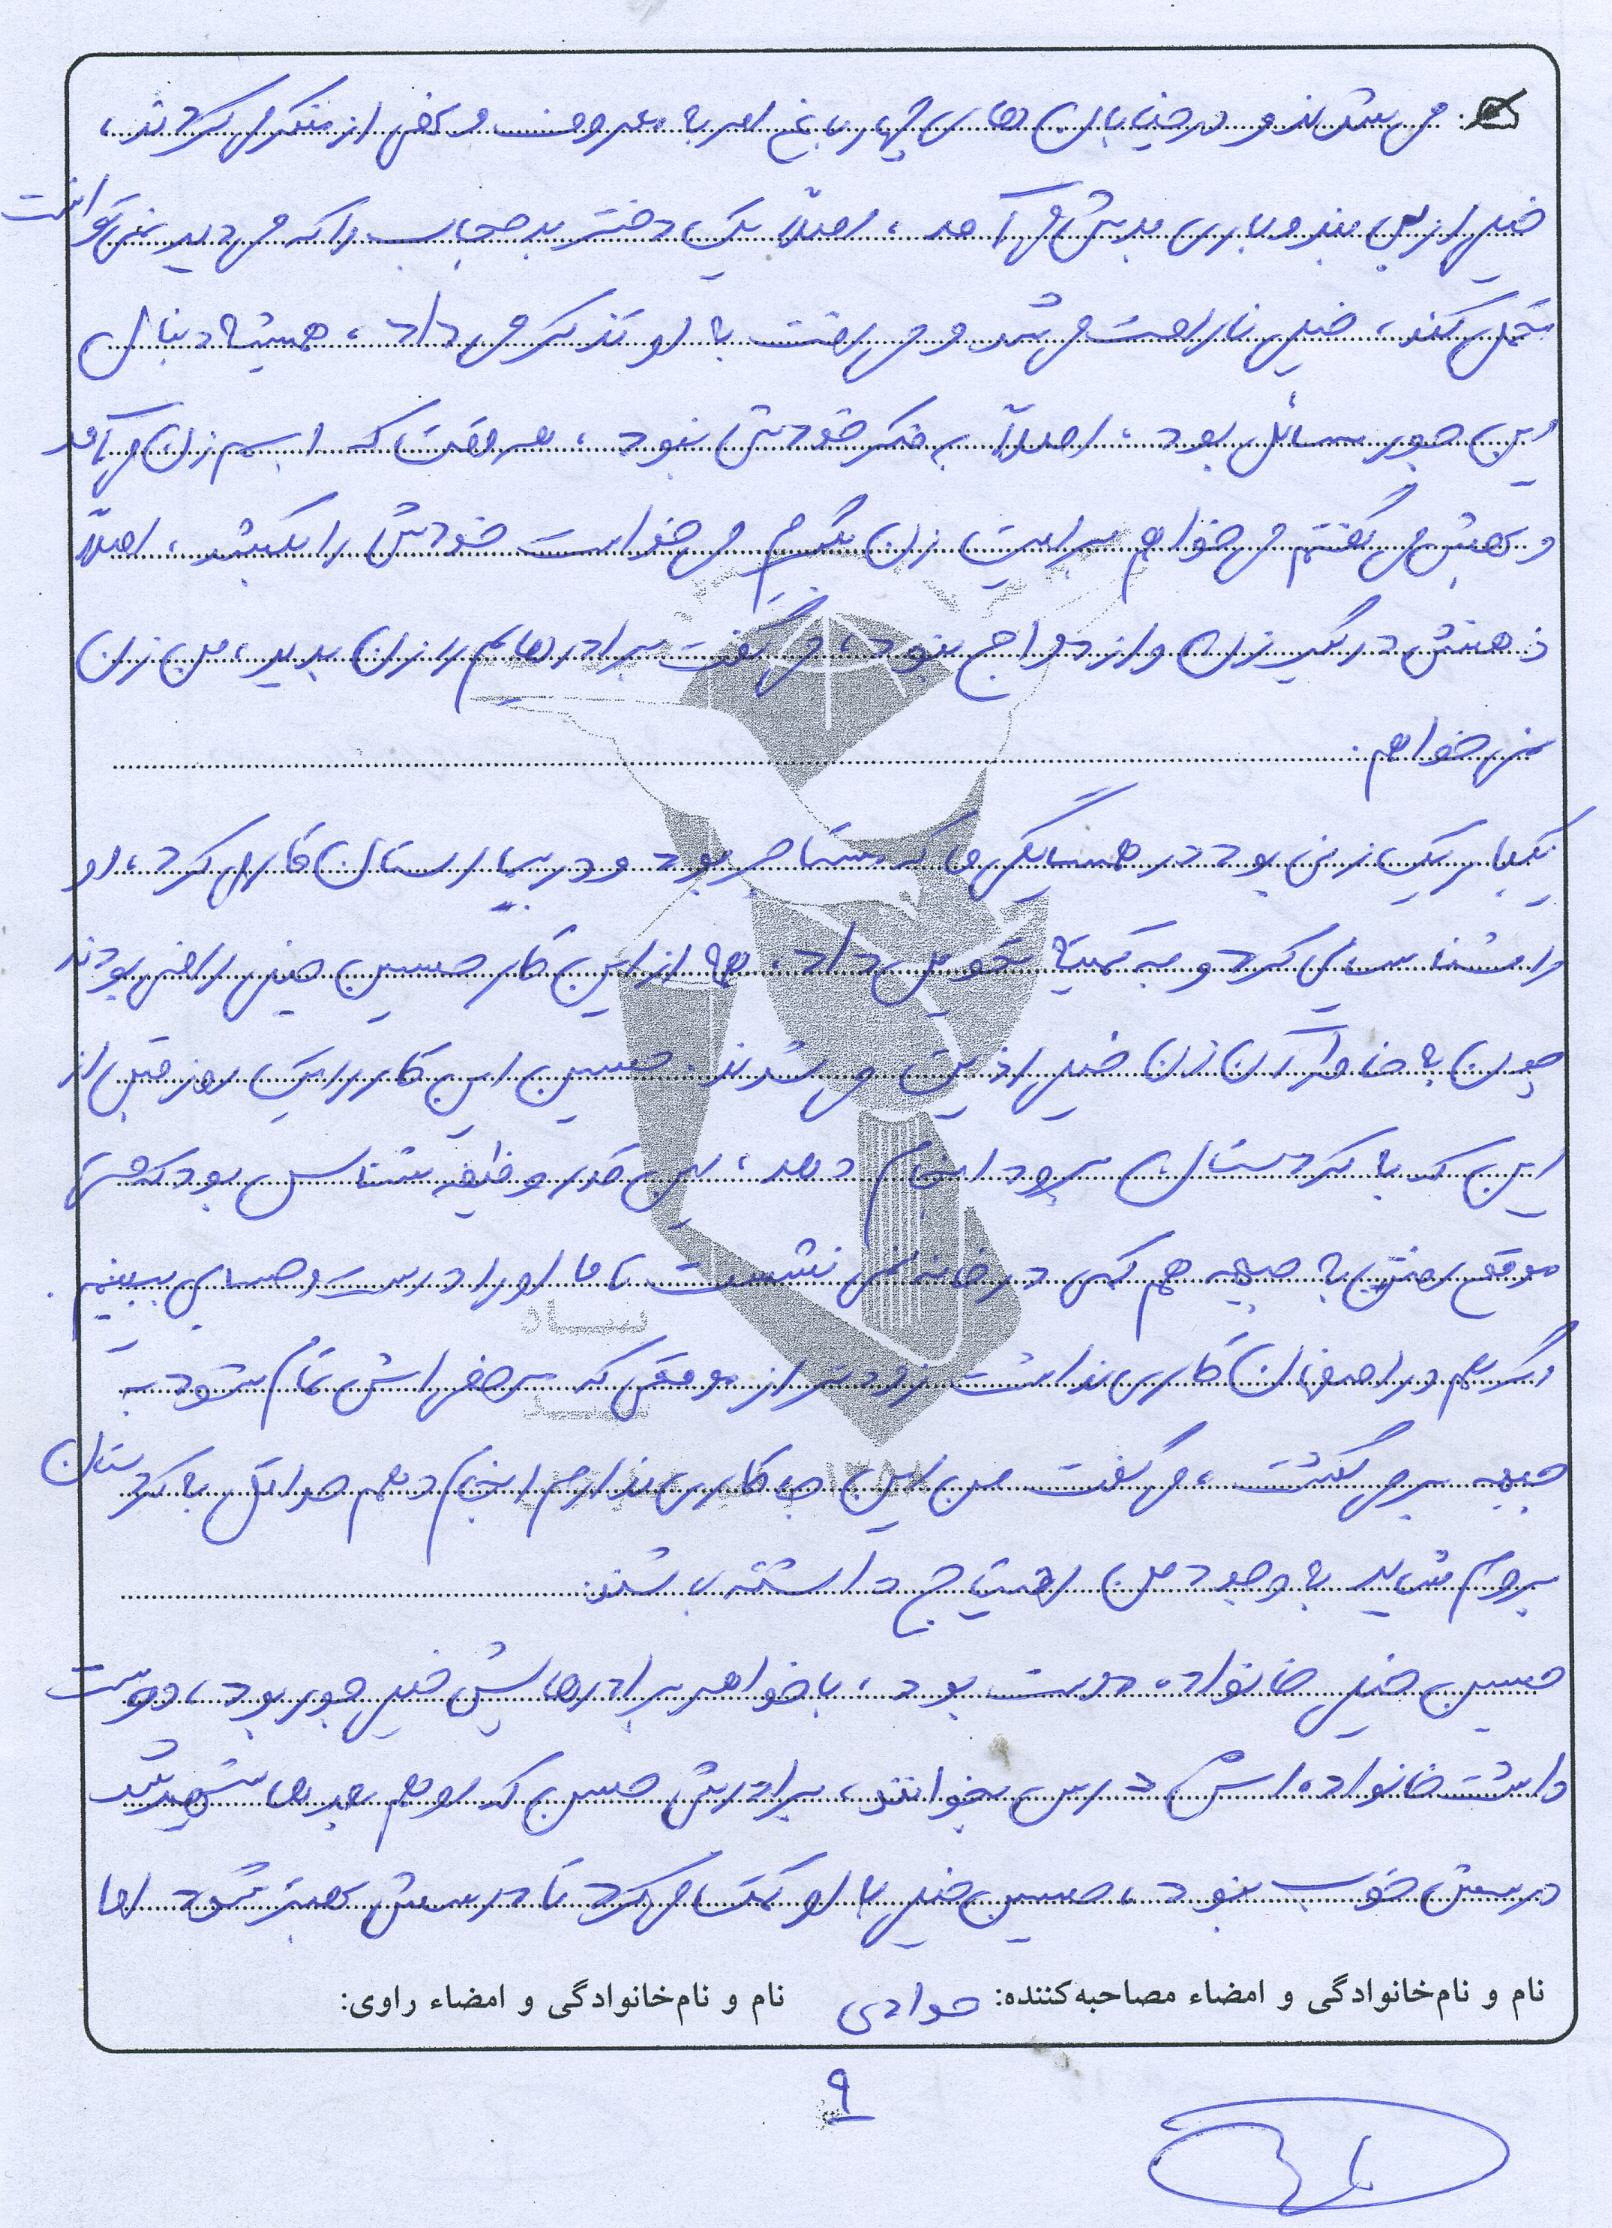 می شدند و در خیابان های چهار باغ امر به معروف و نهی از منکر می کردند،
خیلی از بی بند و باری بدش می آمد، اصلاً یک دختر بد حجاب را که می دید نمی توانست
تحمل کند، خیلی ناراحت می شد و می رفت به او تذکر می داد، همیشه دنبال
این جور مسائل بود، اصلاً به فکر خودش نبود، هر وقت که اسم زن می آمد
و بهش می گفتم می خواهم برایت زن بگیرم می خواست خودش را بکشد، اصلاً
ذهنش درگیر زن و ازدواج نبود، می گفت برادرهایم را زن بدید، من زن
نمی خواهم.
یکبار یک زنی بود در همسایگی ما که مستأجر بود و در بیمارستان کار می کرد، او
را شناسایی کرد و به کمیته تحویل داد، همه از این کار حسین خیلی راضی بودند
چون به خاطر آن زن خیلی اذیت می شدند. حسین این کار را یک روز قبل از
این که به کردستان برود انجام دهد، این قدر وظیفه شناس بود که حتی
موقع رفتن به جبهه هم کمی در خانه نمی نشست تا ما او را درست و حسابی ببینیم.
اگر هم در اصفهان کاری نداشت زودتر از موقعی که مرخصی اش تمام شود به
جبهه بر می گشت، می گفت من این جا کاری ندارم انجام دهم حداقل به کردستان
بروم شاید به وجود من احتیاج داشته باشند.
حسین خیلی خانواده دوست بود، با خواهر برادرهایش خیلی جور بود، دوست
داشت خانواده اش درس بخوانند، برادرش حسن که او هم بعدها شهید شد
درسش خوب نبود، حسین خیلی به او کمک می کرد تا درسش بهتر شود اما
نام و نام‌خانوادگی و امضاء مصاحبه‌کننده: جوادی نام و نام‌خانوادگی و امضاء راوی:
۹